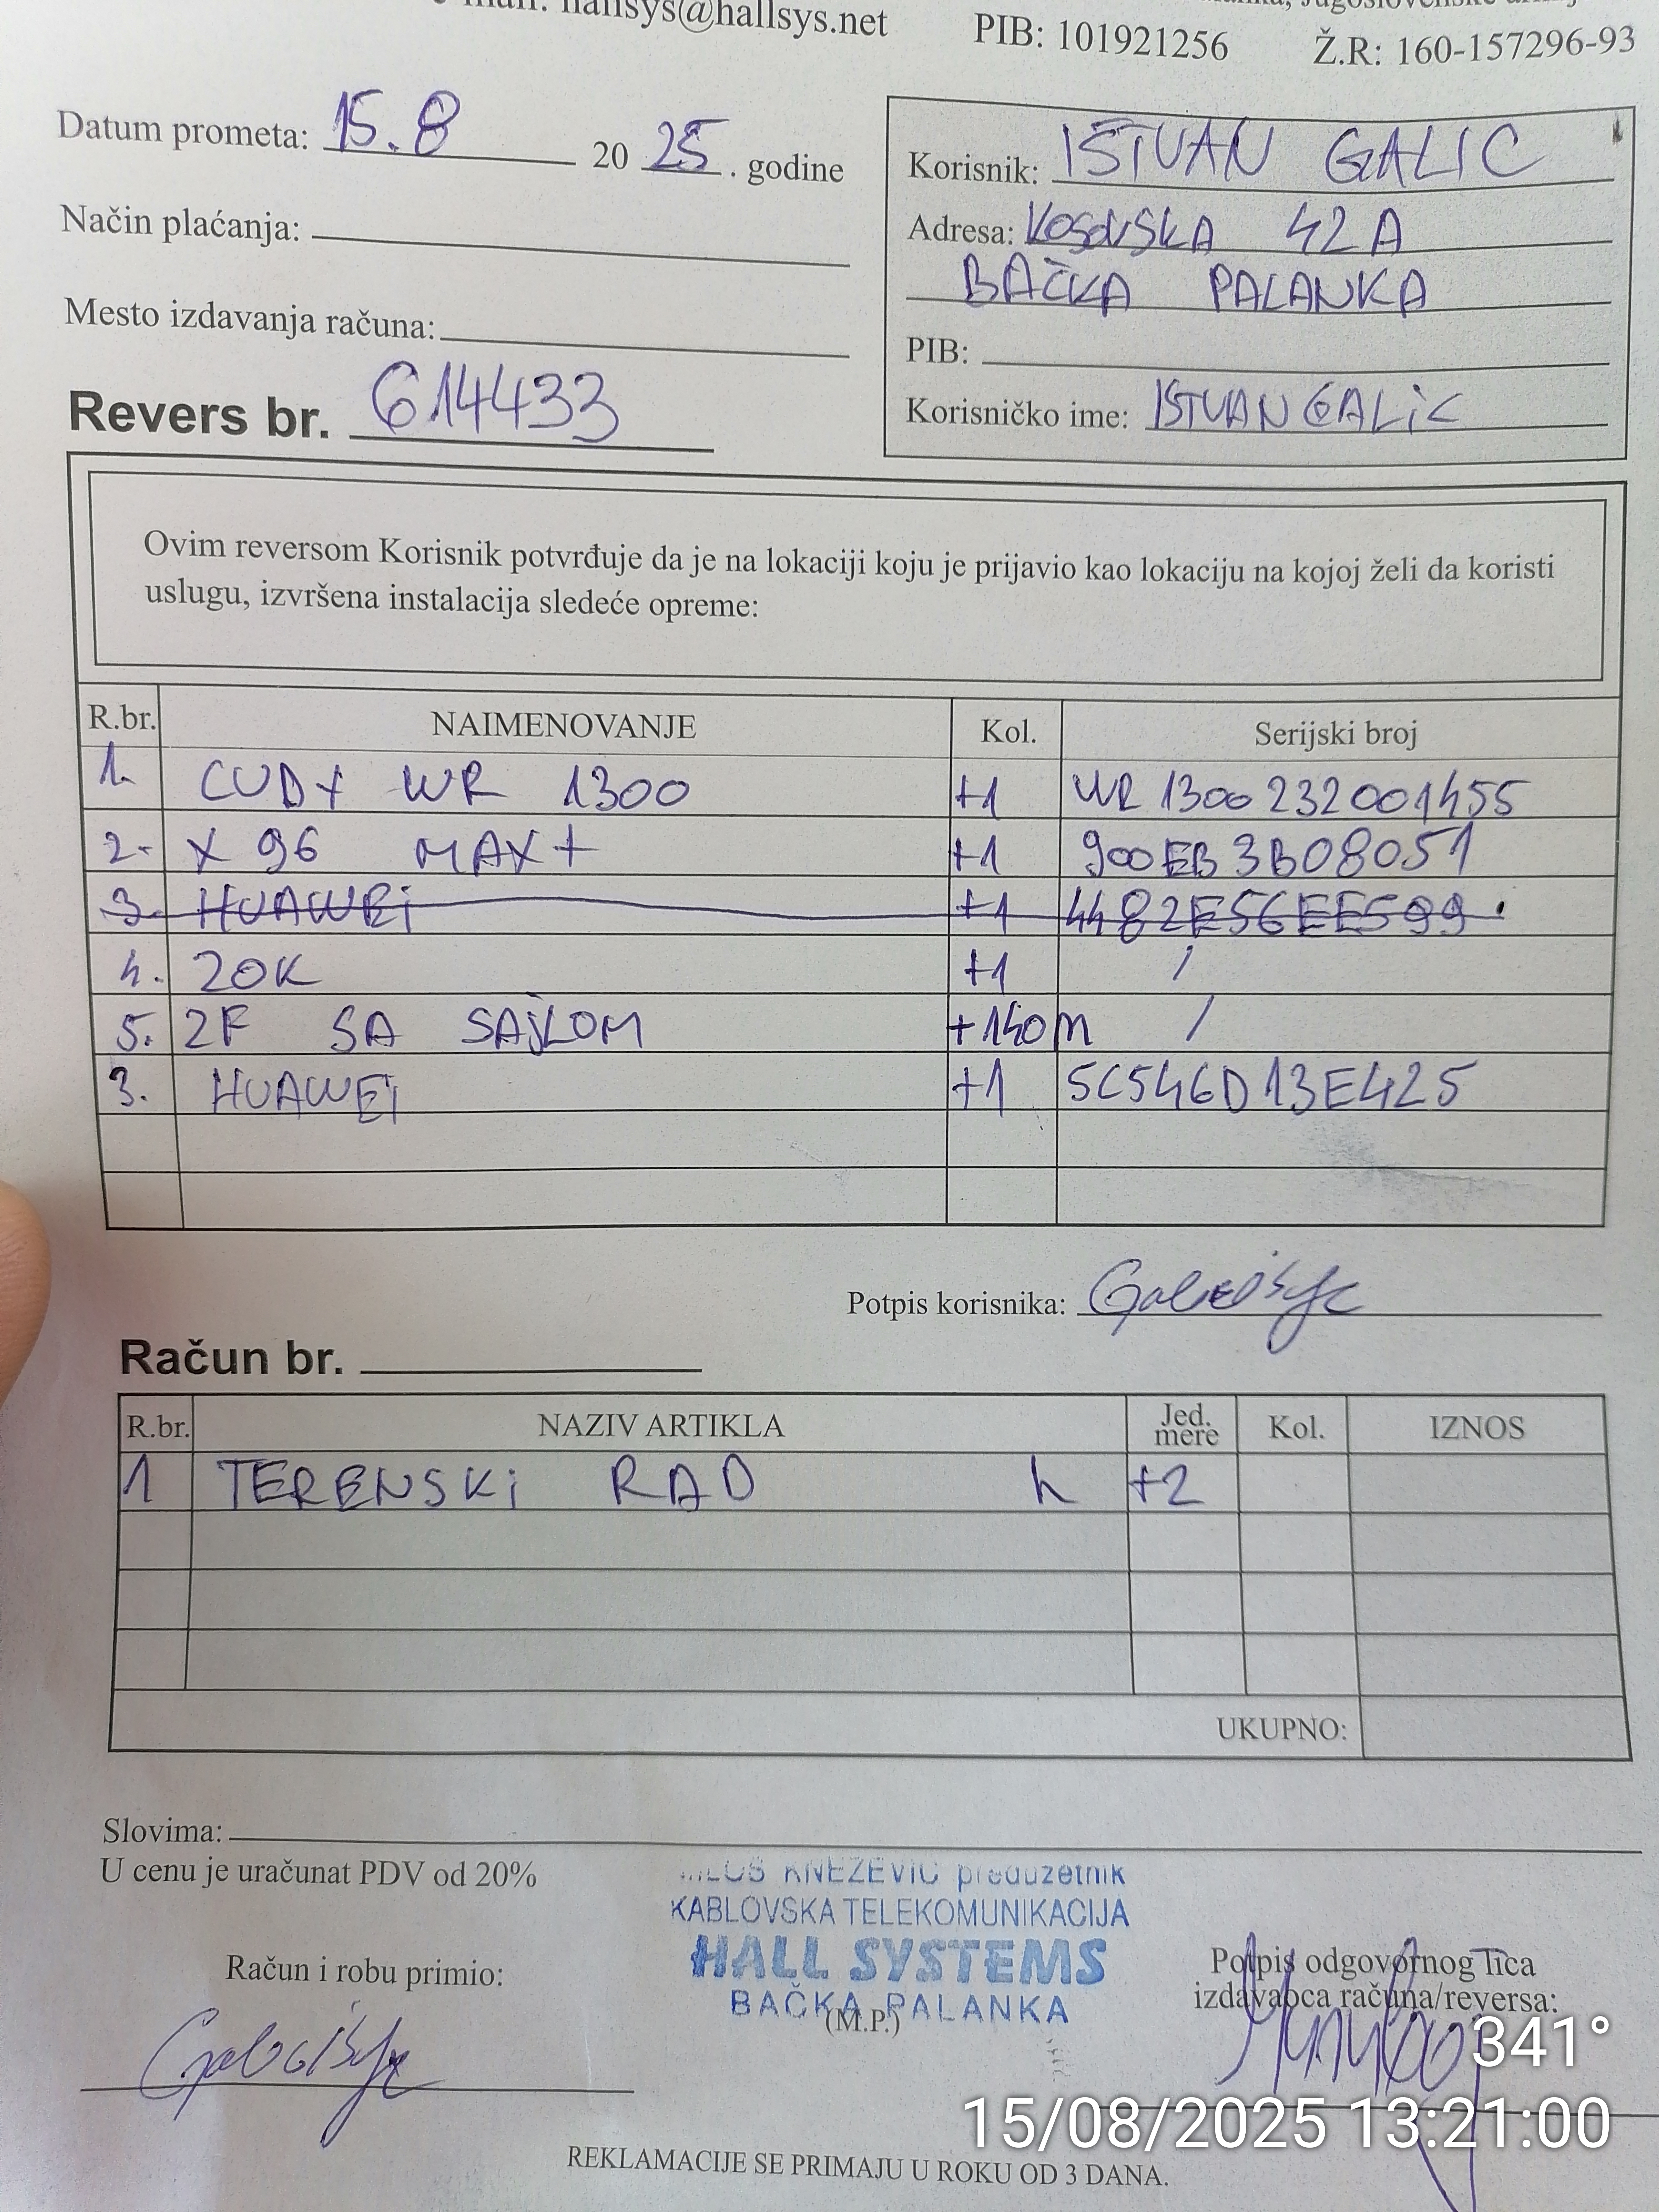 hallsys@hallsys.net PIB: 101921256 Ž.R: 160-157296-93
Datum prometa: 15.8 2025. godine
Način plaćanja:
Mesto izdavanja računa:
Revers br. 614433
Korisnik: ISTVAN GALIC
Adresa: KOSOVSKA 42A
BAČKA PALANKA
PIB:
Korisničko ime: ISTVANGALIC
Ovim reversom Korisnik potvrđuje da je na lokaciji koju je prijavio kao lokaciju na kojoj želi da koristi
uslugu, izvršena instalacija sledeće opreme:
R.br. NAIMENOVANJE Kol. Serijski broj
1. CUDY WR 1300 +1 WR1300232001455
2. X96 MAX+ +1 900EB3B08051
3. HUAWEi +1 4482E56EE599
4. 20K +1 /
5. 2F SA SAJLOM +140m /
3. HUAWEi +1 5C546D13E425
Potpis korisnika:
Račun br.
R.br. NAZIV ARTIKLA Jed. mere Kol. IZNOS
1 TERENSKi RAD h +2
UKUPNO:
Slovima:
U cenu je uračunat PDV od 20%
KNEZEVIC preduzetnik
KABLOVSKA TELEKOMUNIKACIJA
HALL SYSTEMS
BAČKA PALANKA
(M.P.)
Račun i robu primio:
Potpis odgovornog lica
izdavaoca računa/reversa:
341°
15/08/2025 13:21:00
REKLAMACIJE SE PRIMAJU U ROKU OD 3 DANA.